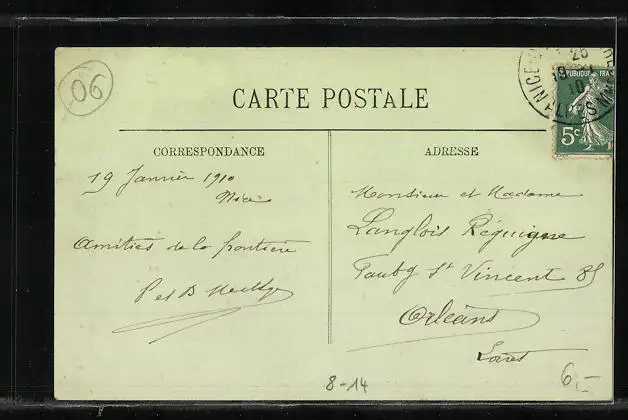 06
CARTE POSTALE
CORRESPONDANCE
19 Janvier 1910
Nice
Amitiés de la frontière
P et B
ADRESSE
Monsieur et Madame
Langlois Réguigne
Faubg St Vincent 85
Orléans
Loiret
NICE
25
19
10
5c
8-14
6,-